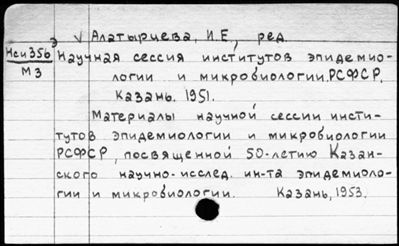 Алатырцева, И.Е., ред.
Нси356
М3
Научная сессия институтов эпидемио-
логии и микробиологии РСФСР.
Казань. 1951.
Материалы научной сессии инсти-
тутов эпидемиологии и микробиологии
РСФСР, посвященной 50-летию Казан-
ского научно-исслед. ин-та эпидемиоло-
гии и микробиологии. Казань, 1953.